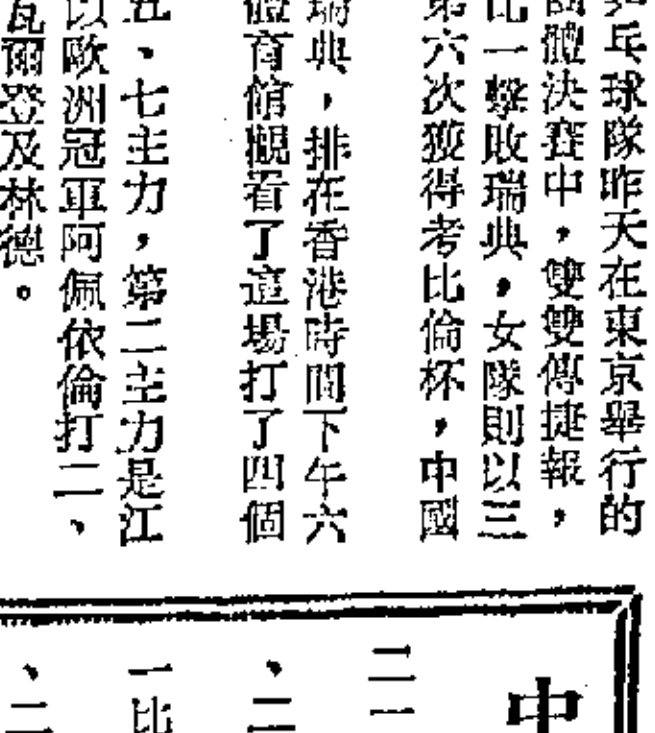 乓球隊昨天在東京舉行的
團體決賽中，雙雙傳捷報，
比一擊敗瑞典，女隊則以三
第六次獲得考比倫杯，中國
瑞典，排在香港時間下午六
體育館觀看了這場打了四個
五、七主力，第二主力是江
以歐洲冠軍阿佩依倫打二、
瓦爾登及林德。
中
二一
、二
一比
、二